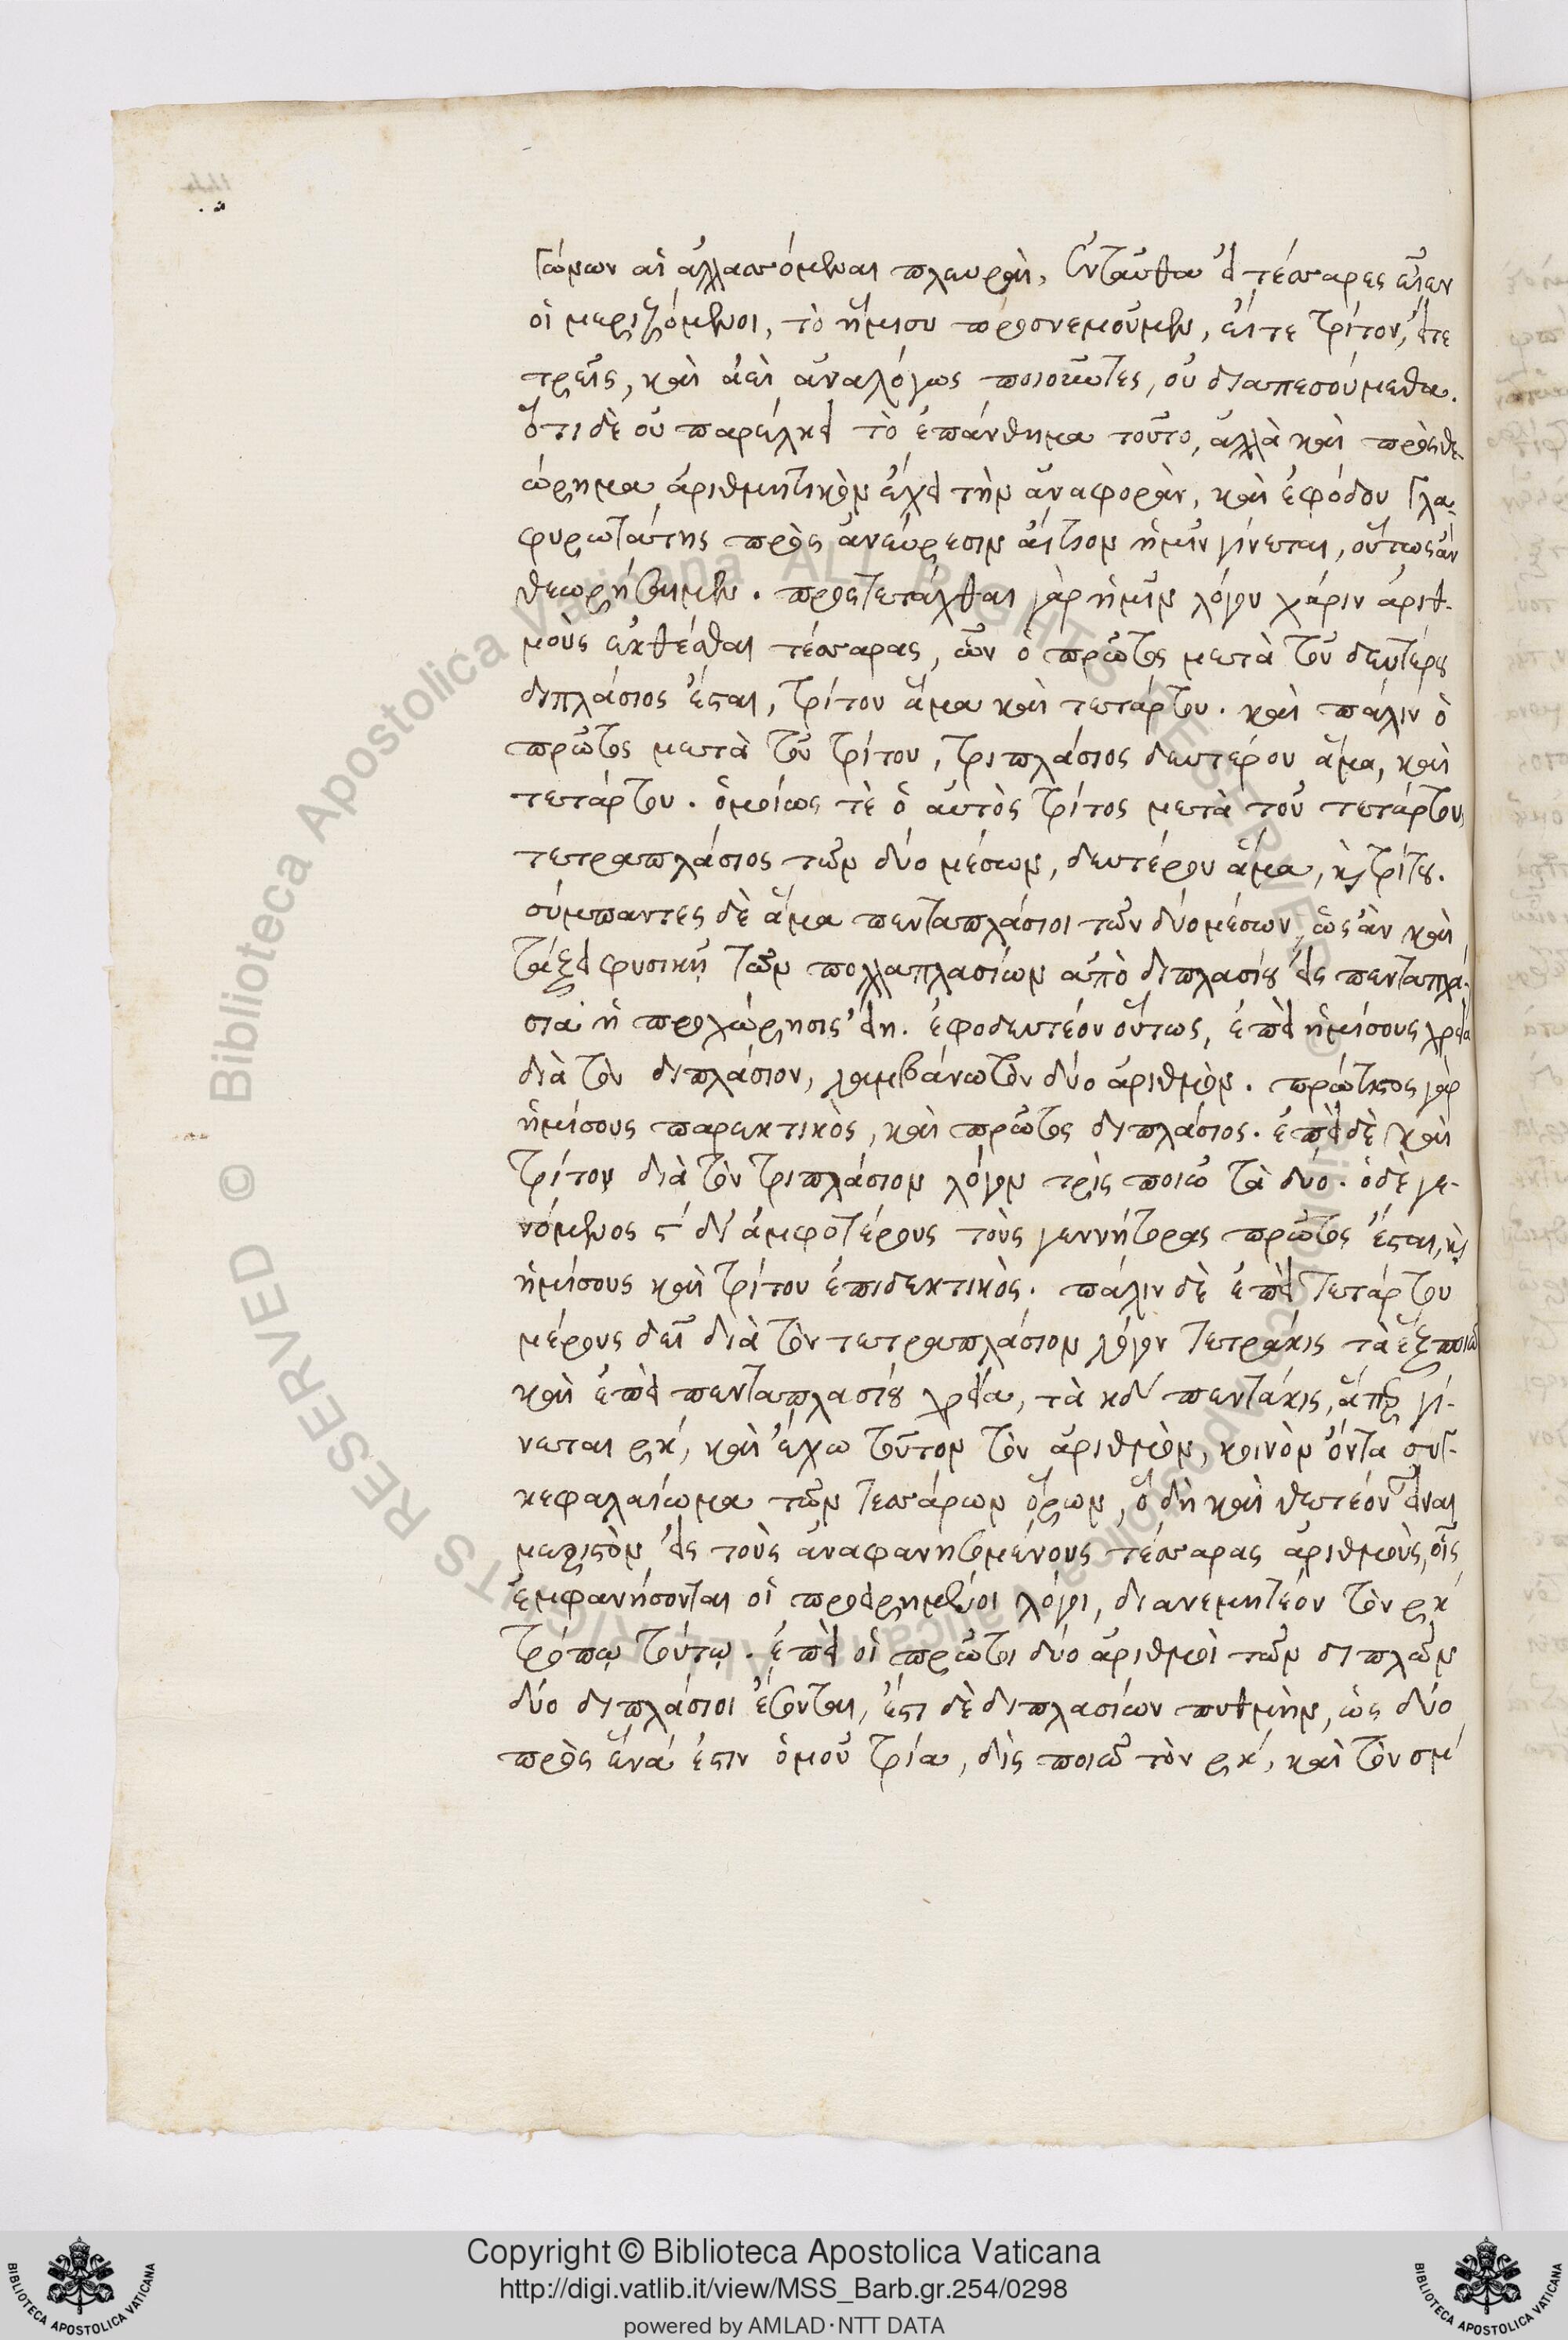 γώνων αἱ ἀλλασσόμεναι πλευραὶ, ἐνταῦθα εἰ τέσσαρες εἶεν
οἱ μεριζόμενοι, τὸ ἥμισυ προσνεμοῦμεν, εἴτε τρίτον, εἴτε
τρεῖς, καὶ ἀεὶ ἀναλόγως ποιοῦντες, οὐ διαπεσούμεθα.
ὅτι δὲ οὐ παρέλκει τὸ ἐπάνθημα τοῦτο, ἀλλὰ καὶ πρὸς θε-
ώρημα ἀριθμητικὸν ἔχει τὴν ἀναφορὰν, καὶ ἐφόδου γλα-
φυρωτάτης πρὸς ἀνεύρεσιν αἴτιον ἡμῖν γίνεται, οὕτως ἂν
θεωρήσαιμεν. προςτετάχθαι γὰρ ἡμῖν λόγου χάριν ἀριθ-
μοὺς ἐκθέσθαι τέσσαρας, ὧν ὁ πρῶτος μετὰ τοῦ δευτέρου
διπλάσιος ἔσται, τρίτου ἅμα καὶ τετάρτου. καὶ πάλιν ὁ
πρῶτος μετὰ τοῦ τρίτου, τριπλάσιος δευτέρου ἅμα, καὶ
τετάρτου. ὁμοίως τὲ ὁ αὐτὸς τρίτος μετὰ τοῦ τετάρτου,
τετραπλάσιος τῶν δύο μέσων, δευτέρου ἅμα, καὶ τρίτου.
σύμπαντες δὲ ἅμα πενταπλάσιοι τῶν δύο μέσων, ὡς ἂν καὶ
τάξει φυσικῇ τῶν πολλαπλασίων ἀπὸ διπλασίου εἰς πενταπλά-
σια ἡ προχώρησις εἴη. ἐφοδευτέον οὕτως, ἐπεὶ ἡμίσους χρεία
διὰ τὸν διπλάσιον, λαμβάνω τὸν δύο ἀριθμὸν. πρώτιστος γὰρ
ἡμίσους παρεκτικὸς, καὶ πρῶτος διπλάσιος. ἐπεὶ δὲ καὶ
τρίτου διὰ τὸν τριπλάσιον λόγον τρὶς ποιῶ τὰ δύο. ὁ δὲ γε-
νόμενος ϛ΄ δι' ἀμφοτέρους τοὺς γεννήτορας πρῶτος ἔσται, καὶ
ἡμίσους καὶ τρίτου ἐπιδεκτικὸς. πάλιν δὲ ἐπεὶ τετάρτου
μέρους δεῖ διὰ τὸν τετραπλάσιον λόγον τετράκις τὰ ἓξ ποιῶ
καὶ ἐπεὶ πενταπλασίου χρεία, τὰ κδ΄ πεντάκις, ἅπερ γί-
νεται ρκ΄, καὶ ἔχω τοῦτον τὸν ἀριθμὸν, κοινὸν ὄντα συγ-
κεφαλαίωμα τῶν τεσσάρων ὅρων, ὃ δὴ καὶ θετέον εἶναι
μεριστὸν εἰς τοὺς ἀναφανησομένους τέσσαρας ἀριθμοὺς, οἷς
ἐμφανήσονται οἱ προειρημένοι λόγοι, διανεμητέον τὸν ρκ΄
τρόπῳ τούτῳ. ἐπεὶ οἱ πρῶτοι δύο ἀριθμοὶ τῶν διπλῶν
δύο διπλάσιοι ἔσονται, ἔστι δὲ διπλασίων πυθμὴν, ὡς δύο
πρὸς ἕνά ἐστιν ὁμοῦ τρία, δὶς ποιῶ τὸν ρκ΄, καὶ τὸν σμ΄
© Biblioteca Apostolica Vaticana ALL RIGHTS RESERVED © Biblioteca Apostolica Vaticana ALL RIGHTS RESERVED
Copyright © Biblioteca Apostolica Vaticana
http://digi.vatlib.it/view/MSS_Barb.gr.254/0298
powered by AMLAD·NTT DATA
BIBLIOTECA APOSTOLICA VATICANA
BIBLIOTECA APOSTOLICA VATICANA